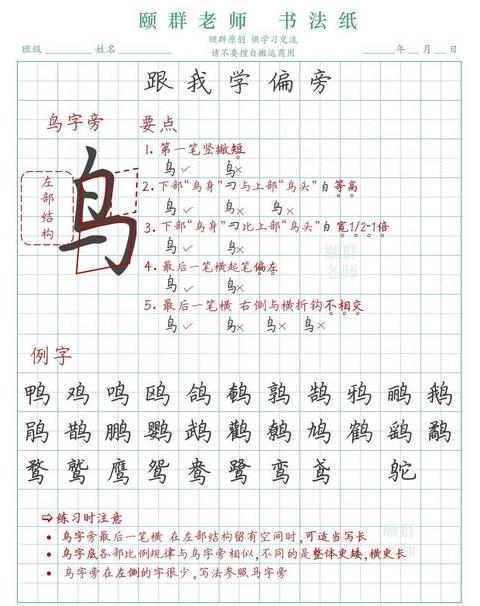 颐群老师 书法纸
颐群原创 供学习交流
请不要擅自搬运商用
班级 姓名 年 月 日
跟我学偏旁
鸟字旁 要点
左部结构
鸟
1. 第一笔竖撇短
鸟✓ 鸟×
2. 下部“鸟身”㇉与上部“鸟头”白等高
鸟✓ 鸟× 鸟×
3. 下部“鸟身”㇉比上部“鸟头”白宽1/2-1倍
鸟✓ 鸟×
4. 最后一笔横起笔偏左
鸟✓ 鸟×
5. 最后一笔横 右侧与横折钩不相交
鸟✓ 鸟× 鸟× 鸟×
颐群老师
例字
鸭 鸡 鸣 鸥 鸽 鹌 鹑 鹄 鸦 鹂 鹅
鹃 鹊 鹏 鹦 鹉 鹳 鸠 鹤 鹞 鹬
鹜 鹫 鹰 鸳 鸯 鹭 鸾 鸢 鸵
⇨练习时注意
• 鸟字旁最后一笔横 在左部结构留有空间时,可适当写长
• 鸟字底各部比例规律与鸟字旁相似,不同的是整体更矮,横更长
• 鸟字旁在左侧的字很少,写法参照马字旁
颐群老师